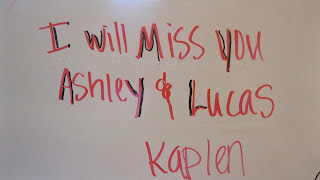 I will Miss you
Ashley & Lucas
Kaplen